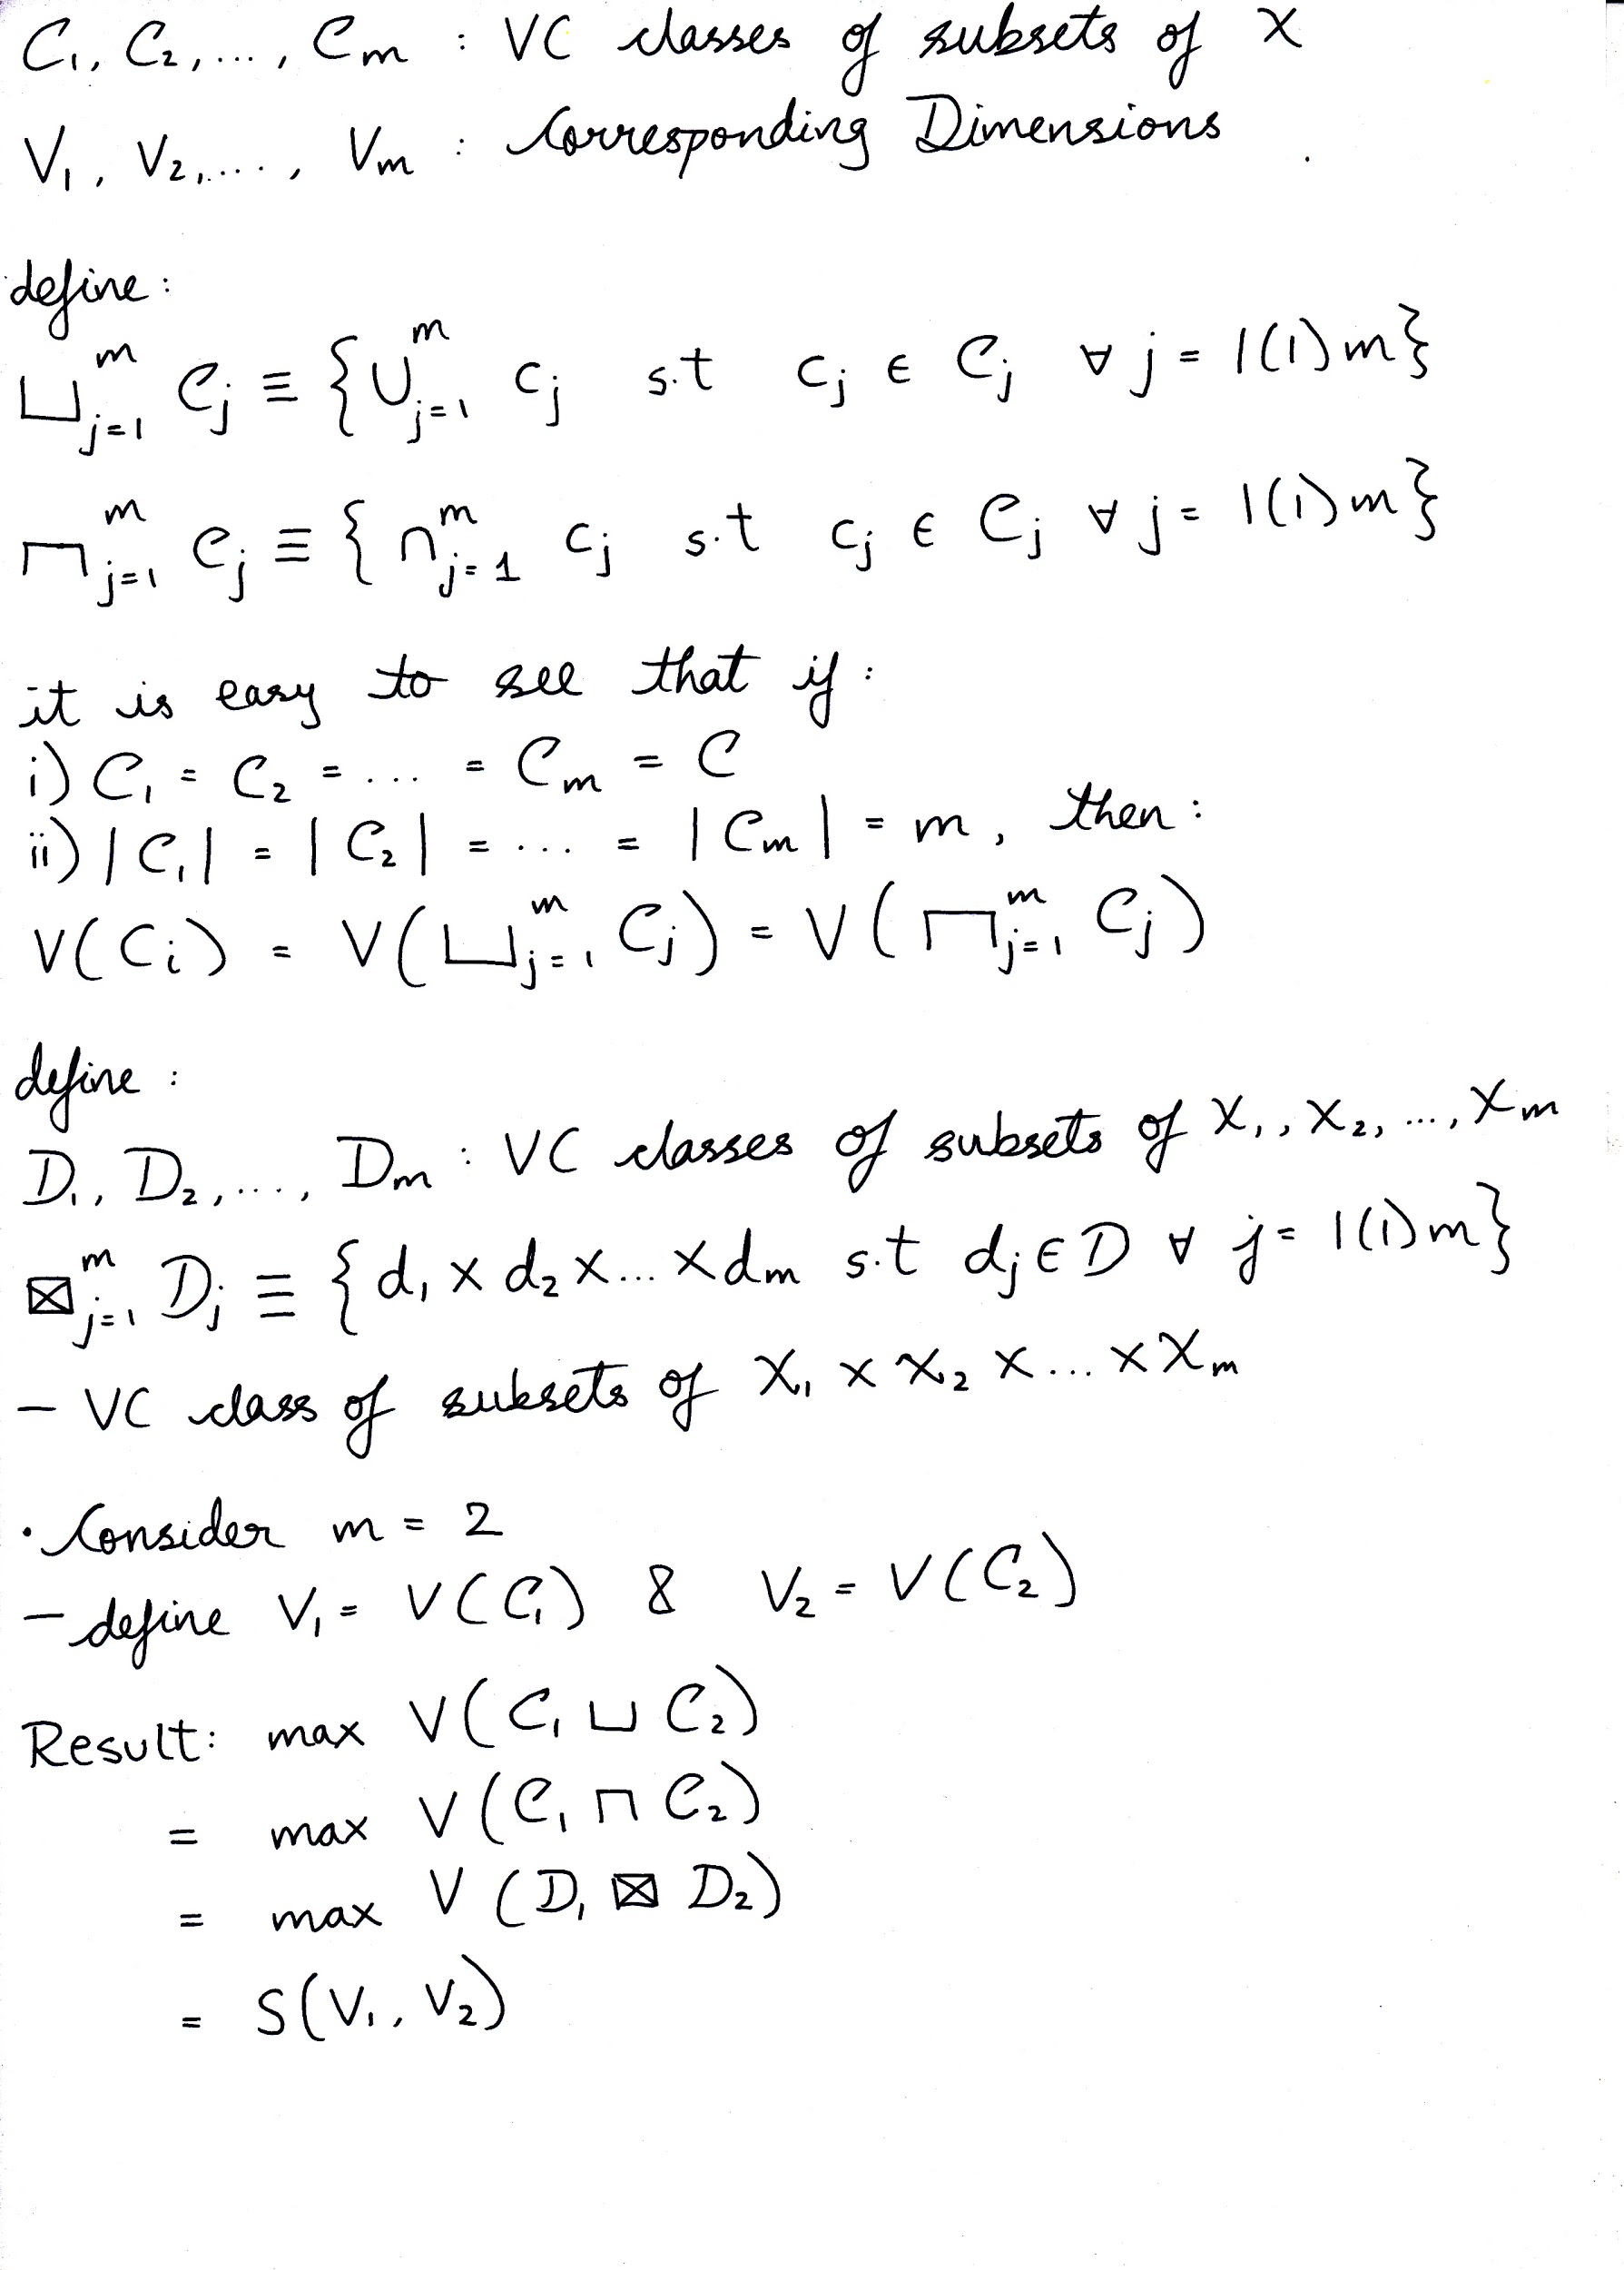 C₁, C₂, ..., Cₘ : VC classes of subsets of X
V₁, V₂, ...., Vₘ : Corresponding Dimensions
define:
⊔ⱼ₌₁ᵐ Cⱼ ≡ {∪ⱼ₌₁ᵐ cⱼ s.t cⱼ ∈ Cⱼ ∀ j = 1(1)m}
⊓ⱼ₌₁ᵐ Cⱼ ≡ {∩ⱼ₌₁ᵐ cⱼ s.t cⱼ ∈ Cⱼ ∀ j = 1(1)m}
it is easy to see that if:
i) C₁ = C₂ = ... = Cₘ = C
ii) |C₁| = |C₂| = ... = |Cₘ| = m, then:
V(Cᵢ) = V(⊔ⱼ₌₁ᵐ Cⱼ) = V(⊓ⱼ₌₁ᵐ Cⱼ)
define :
D₁, D₂, ...., Dₘ : VC classes of subsets of X₁, X₂, ..., Xₘ
⊠ⱼ₌₁ᵐ Dⱼ ≡ {d₁ x d₂ x ... x dₘ s.t dⱼ ∈ D ∀ j = 1(1)m}
— VC class of subsets of X₁ x X₂ x ... x Xₘ
• Consider m = 2
— define V₁ = V(C₁) & V₂ = V(C₂)
Result: max V(C₁ ⊔ C₂)
= max V(C₁ ⊓ C₂)
= max V(D₁ ⊠ D₂)
= S(V₁, V₂)